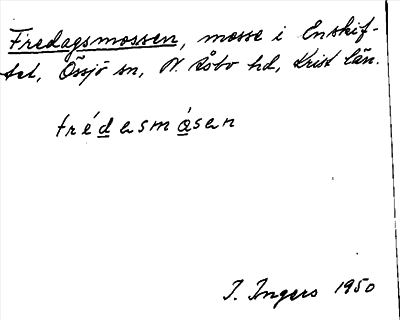 Fredagsmossen, mosse i Enskif-
tet, Össjö sn, N. Åsbo hd, Krist län.
frédasmåsen
I. Ingers 1950